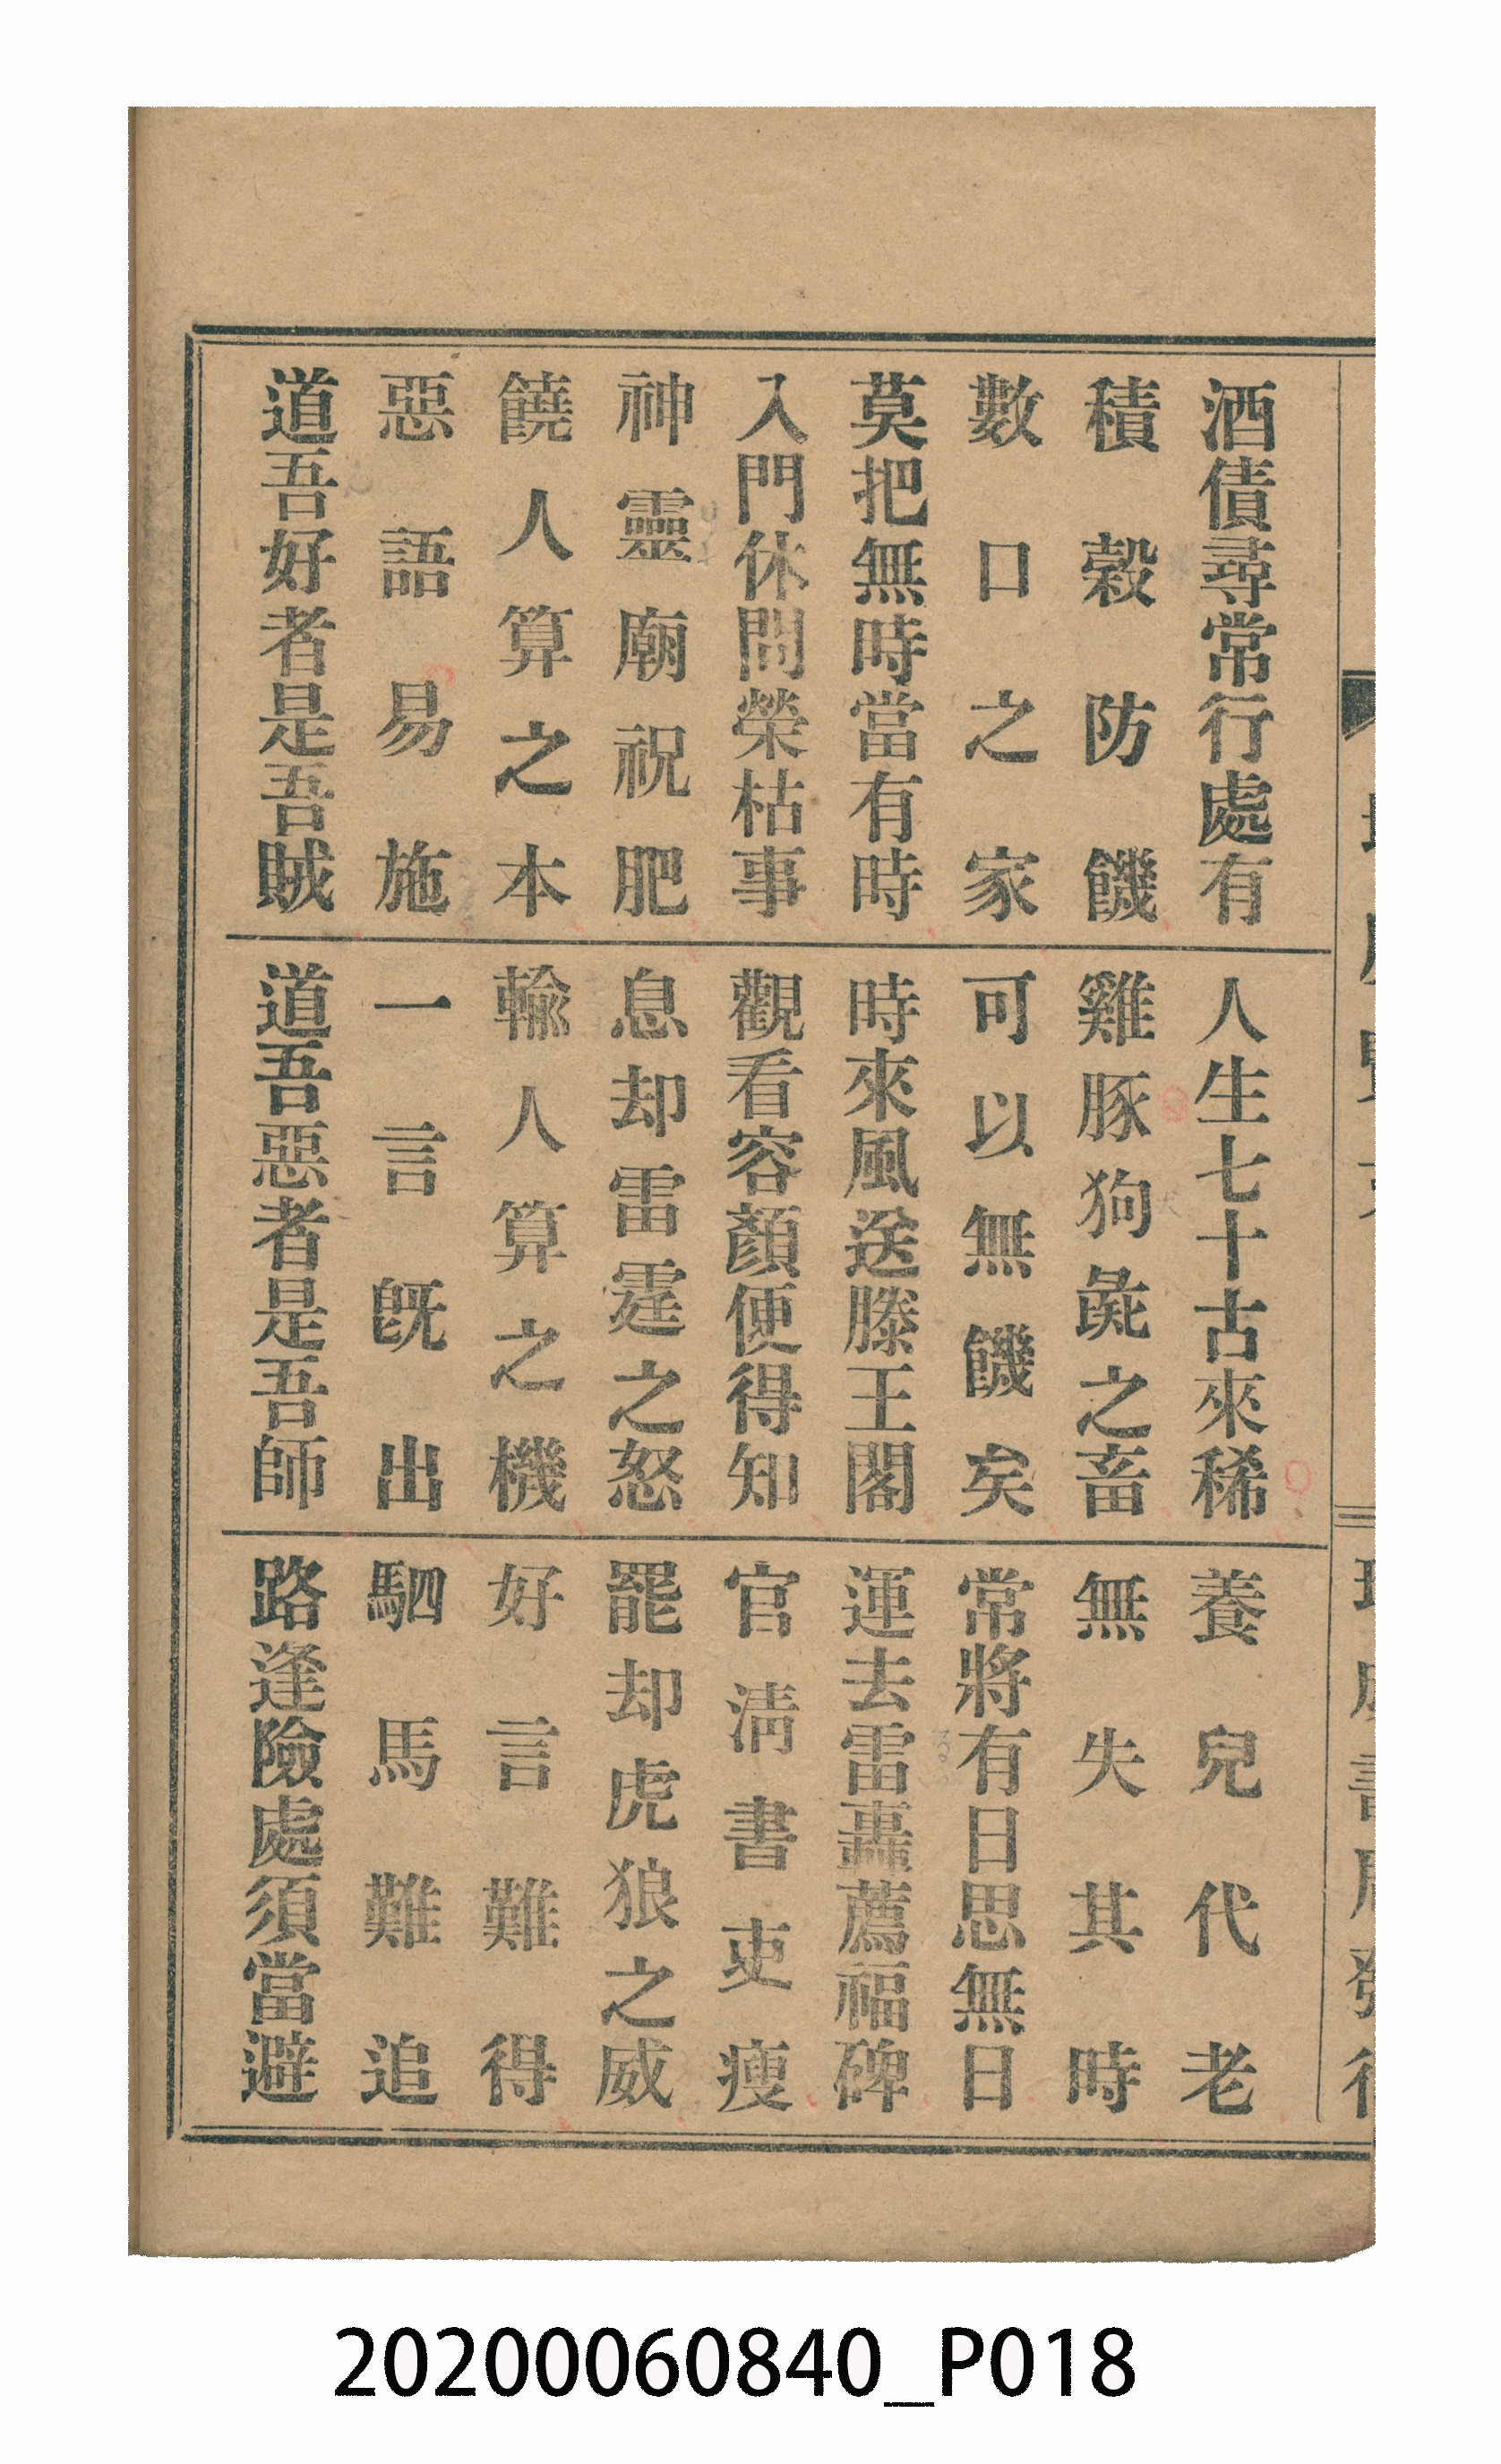 酒債尋常行處有
人生七十古來稀
養兒代老
積穀防饑
雞豚狗彘之畜
無失其時
數口之家
可以無饑矣
常將有日思無日
莫把無時當有時
時來風送滕王閣
運去雷轟薦福碑
入門休問榮枯事
觀看容顏便得知
官淸書吏瘦
神靈廟祝肥
息却雷霆之怒
罷却虎狼之威
饒人算之本
輸人算之機
好言難得
惡語易施
一言旣出
駟馬難追
道吾好者是吾賊
道吾惡者是吾師
路逢險處須當避
20200060840_P018